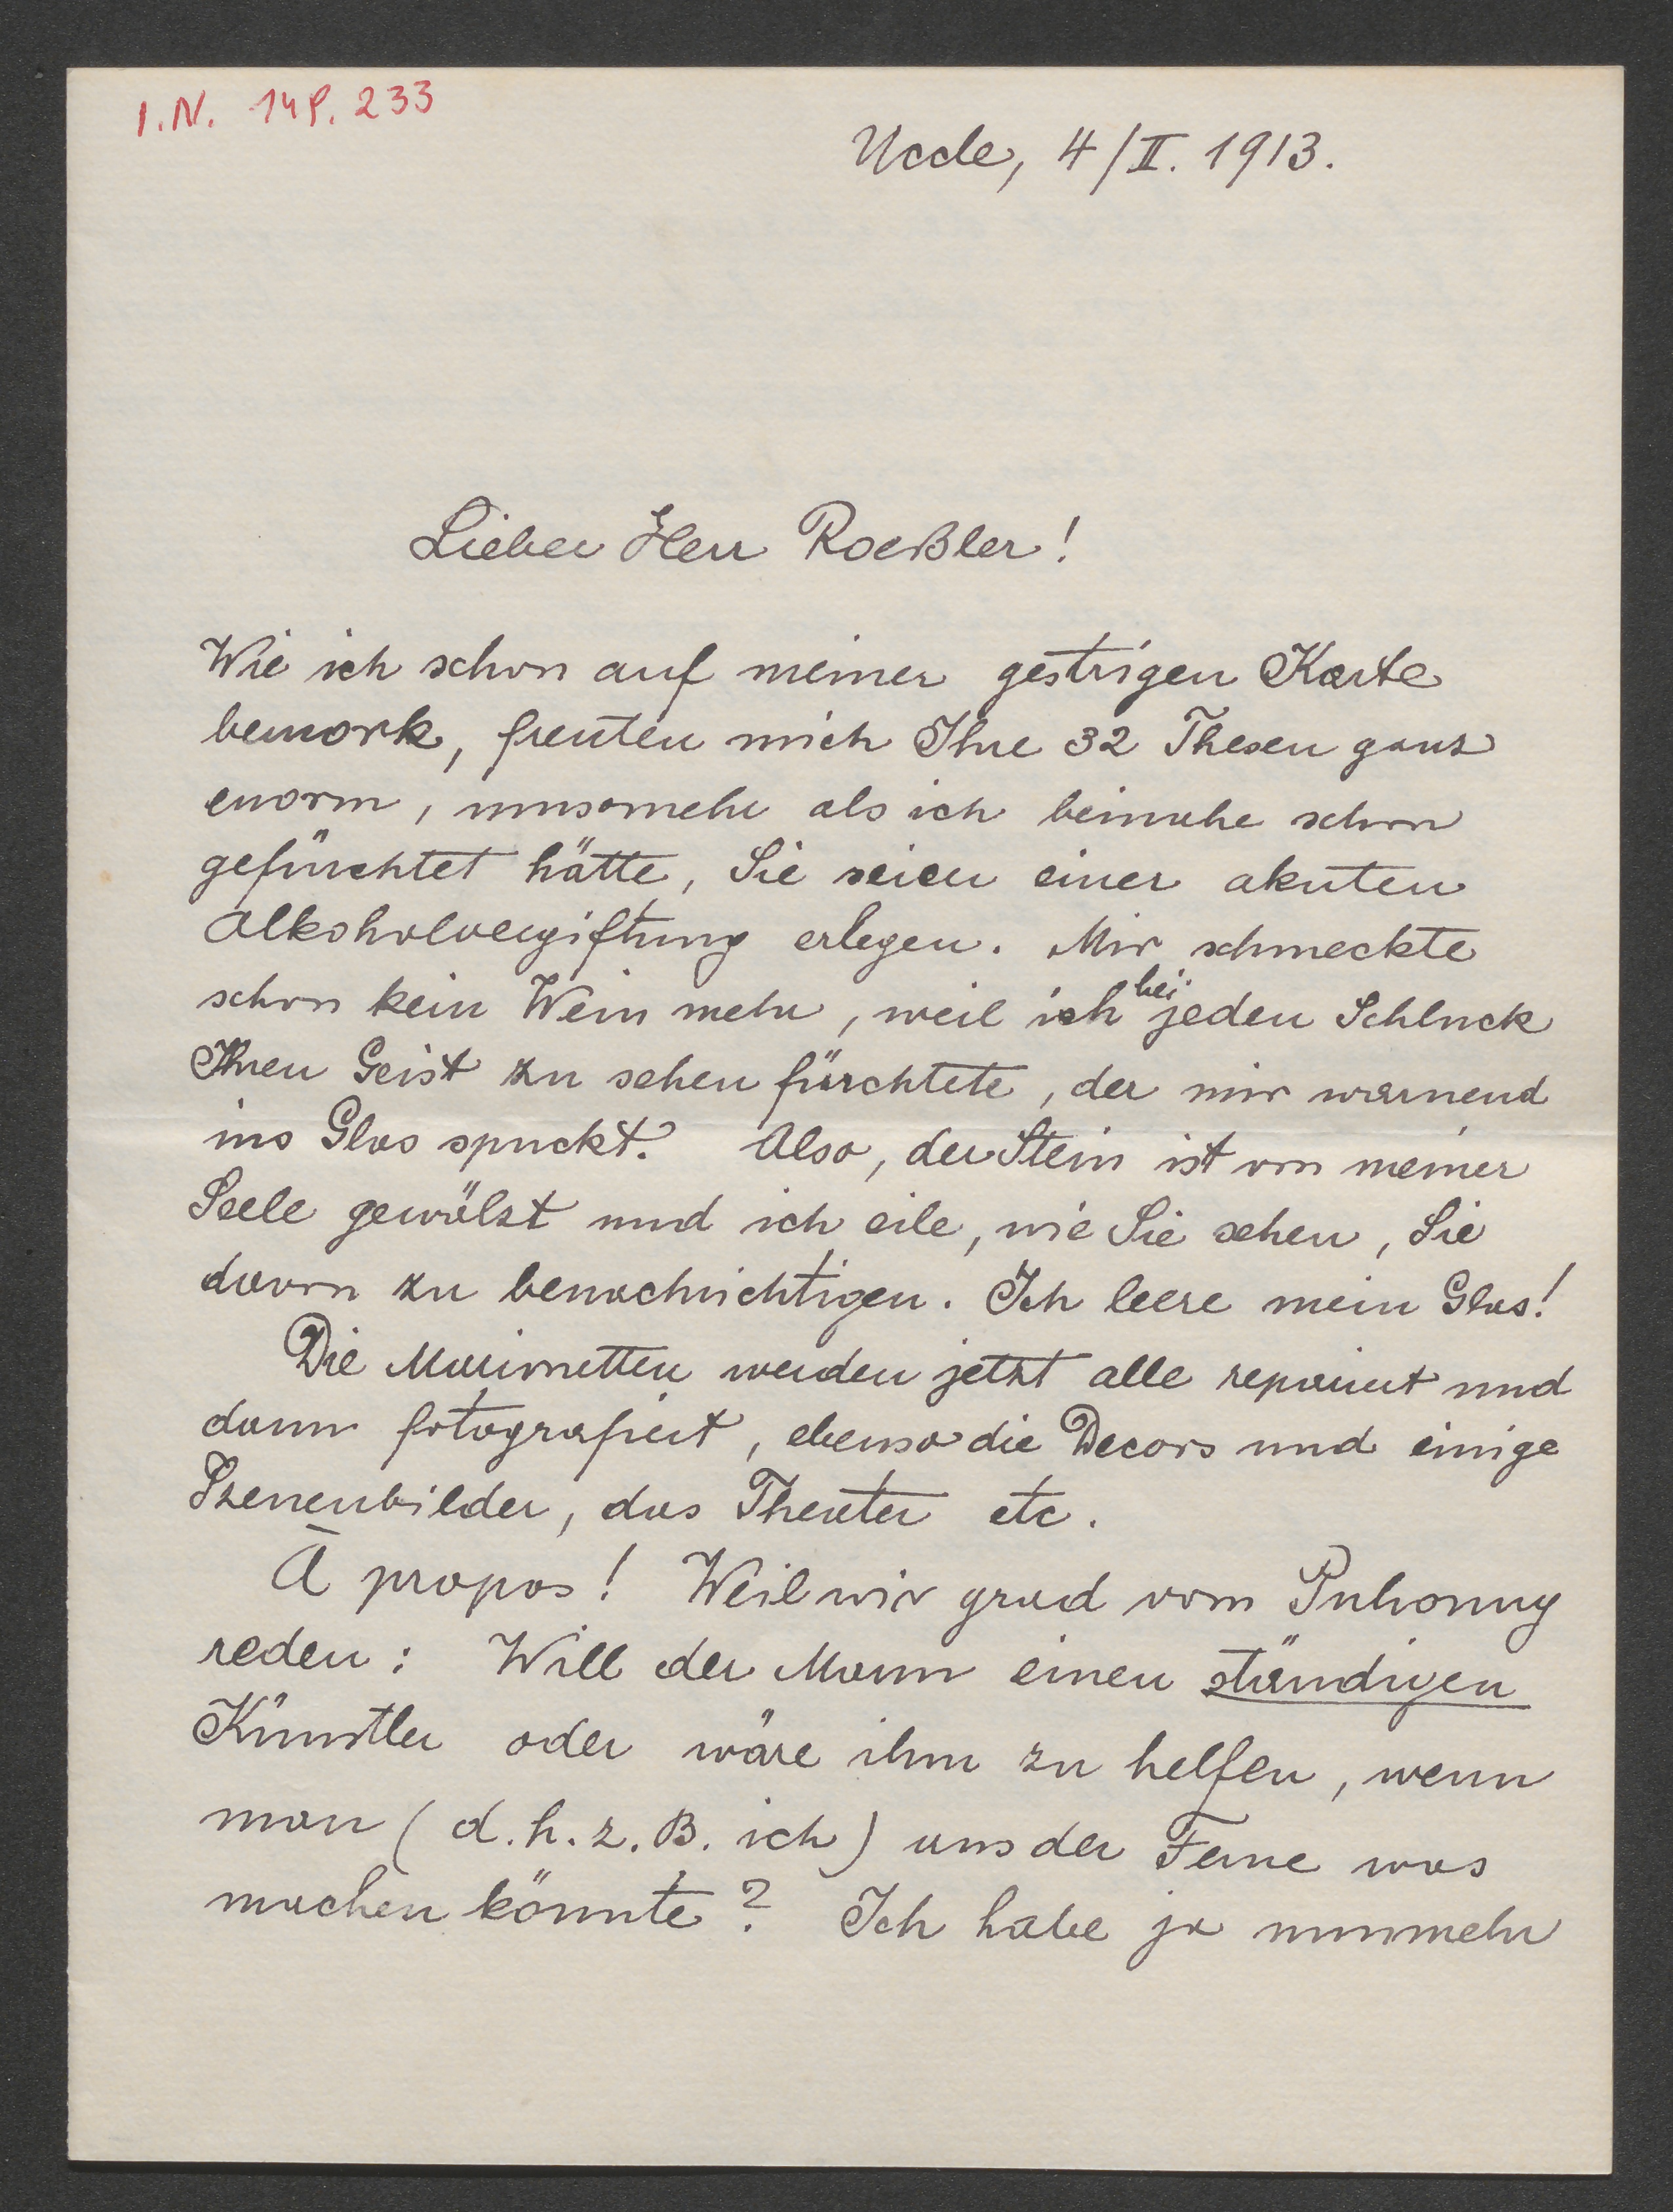 I.N. 148.233
Uccle, 4/II. 1913.
Lieber Herr Roeßler!
Wie ich schon auf meiner gestrigen Karte
bemerk, freuten mich Ihre 32 Thesen ganz
enorm, umsomehr als ich beinahe schon
gefürchtet hätte, Sie seien einer akuten
Alkoholvergiftung erlegen. Mir schmeckte
schon kein Wein mehr, weil ich bei jeden Schluck
Ihren Geist zu sehen fürchtete, der mir warnend
ins Glas spuckt. Also, der Stein ist von meiner
Seele gewälzt und ich eile, wie Sie sehen, Sie
davon zu benachrichtigen. Ich leere mein Glas!
Die Marionetten werden jetzt alle repariert und
dann fotografiert, ebenso die Decors und einige
Szenenbilder, das Theater etc.
À propos! Weil wir grad vom Puhonny
reden: Will der Mann einen ständigen
Künstler oder wäre ihm zu helfen, wenn
man (d.h. z.B. ich) aus der Ferne was
machen könnte? Ich habe ja nunmehr